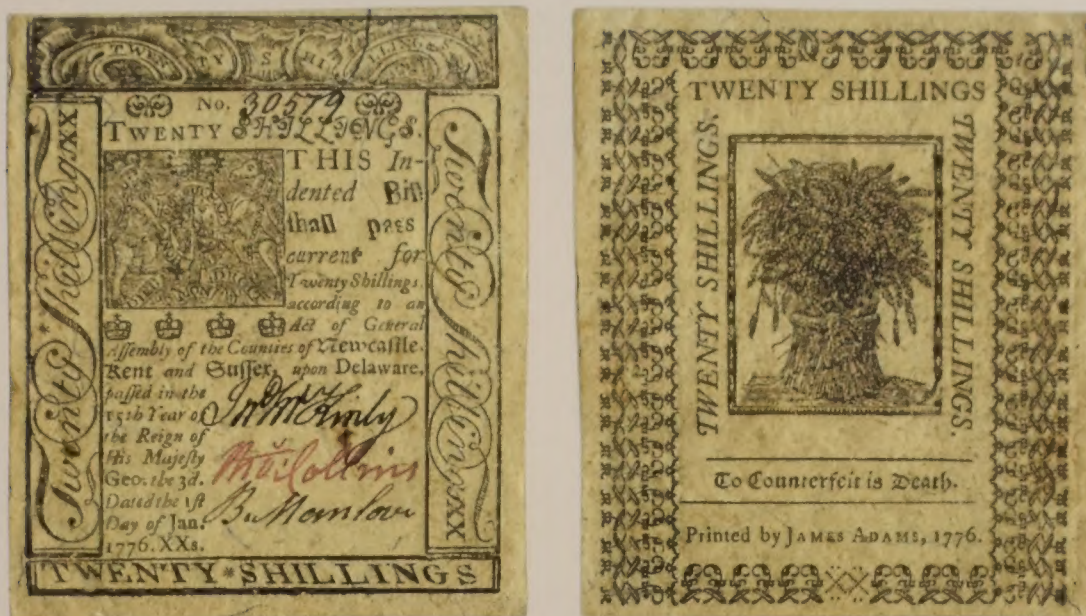 TWENTY SHILLINGS
No. 30579
TWENTY SHILLINGS.
THIS In-
dented Bill
shall pass
current for
Twenty Shillings,
according to an
Act of General
Assembly of the Counties of Newcastle,
Kent and Sussex, upon Delaware,
passed in the
15th Year of
the Reign of
His Majesty
Geo. the 3d.
Dated the 1st
Day of Jan.
1776. XXs.
Jno McKinly
Collins
B. Manlove
Twenty Shillings XX
Twenty Shillings XX
TWENTY*SHILLINGS
TWENTY SHILLINGS
TWENTY SHILLINGS.
TWENTY SHILLINGS.
To Counterfeit is Death.
Printed by JAMES ADAMS, 1776.